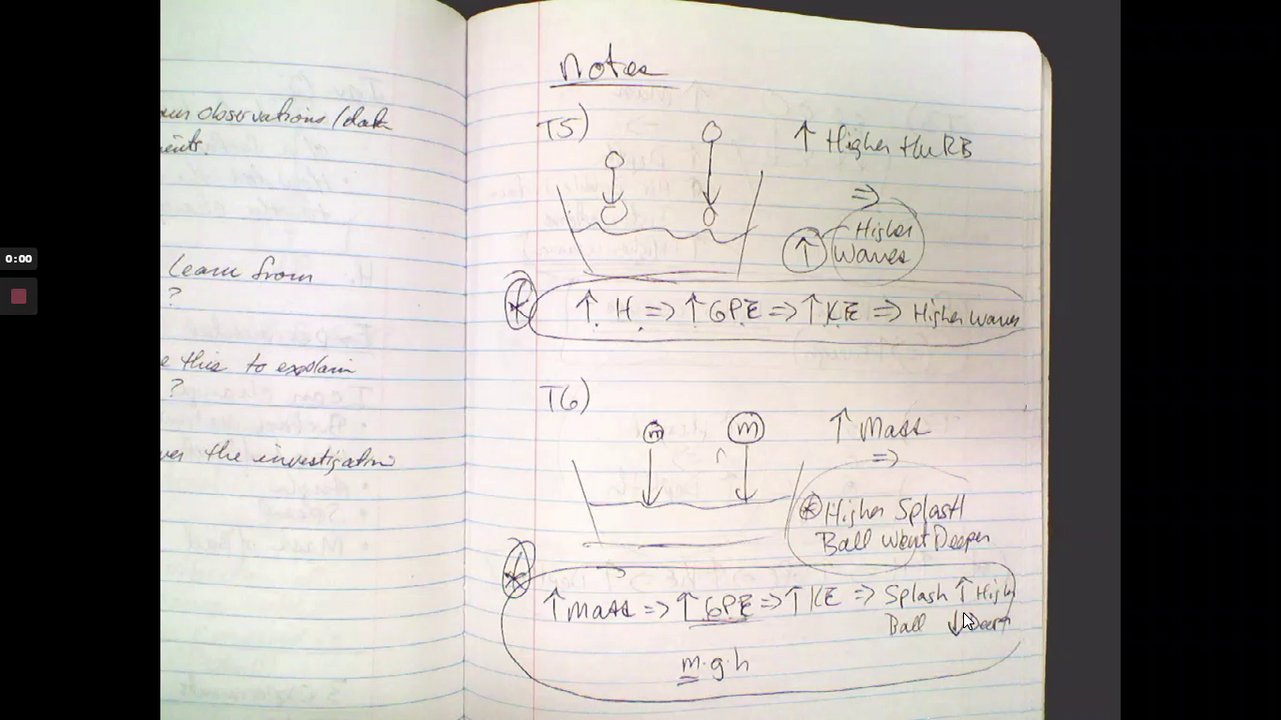 observations / data
0:00
learn from
?
this to explain
?
the investigation
notes
T5)
↑ Higher the RB
⇒
↑ Higher
Waves
* ↑ H ⇒ ↑ GPE ⇒ ↑ KE ⇒ Higher waves
T6)
m m
↑ Mass
⇒
* Higher Splash
Ball went Deeper
* ↑ Mass ⇒ ↑ GPE ⇒ ↑ KE ⇒ Splash ↑ High
Ball ↓
m·g·h